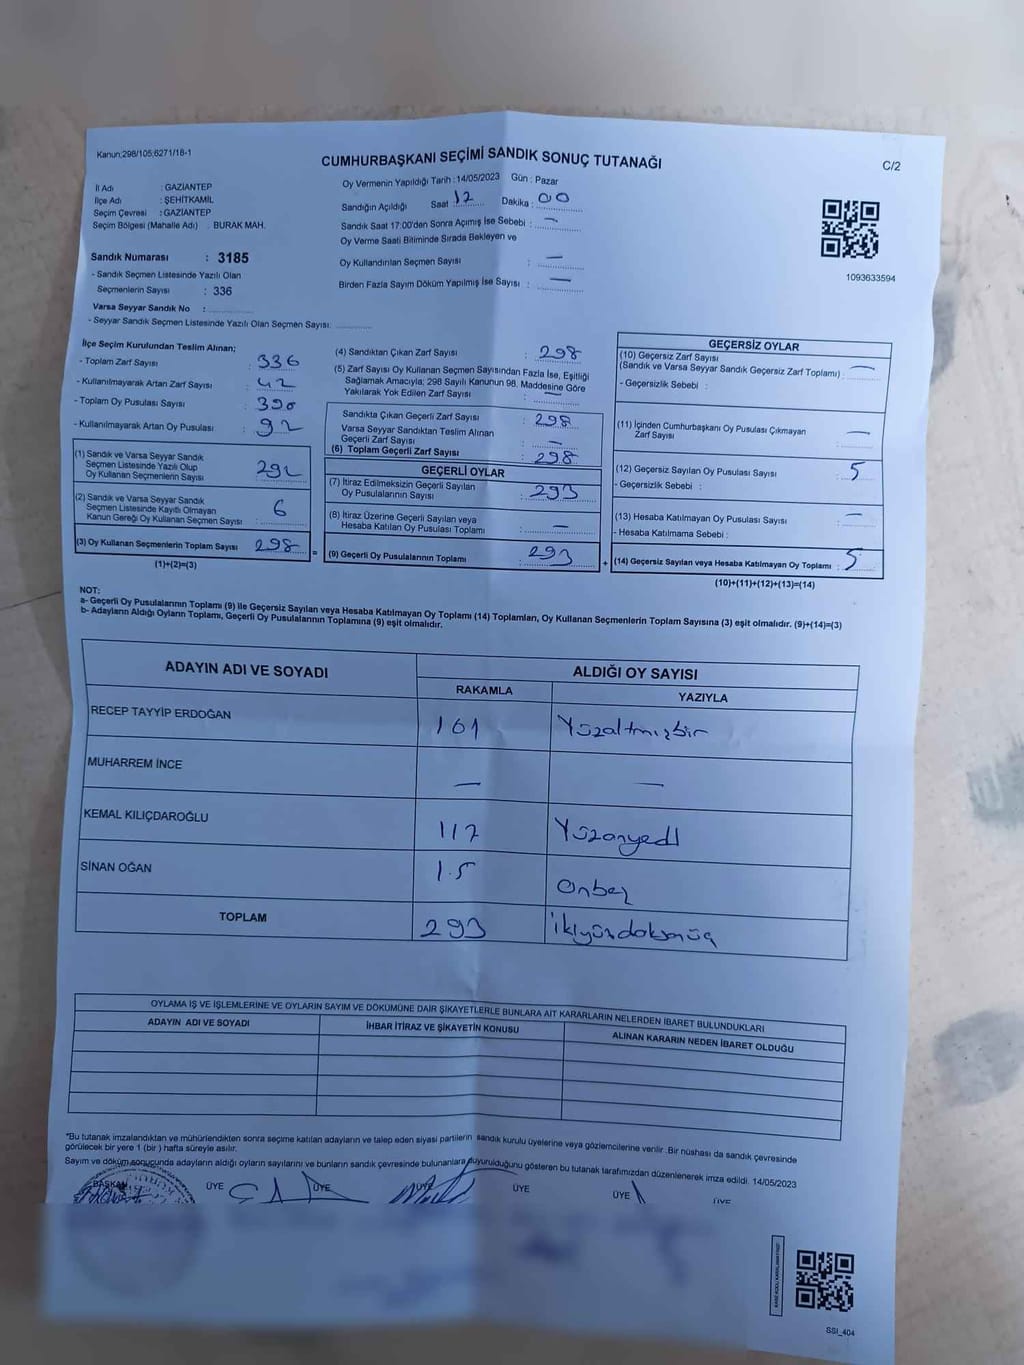 Kanun;298/105;6271/18-1
CUMHURBAŞKANI SEÇİMİ SANDIK SONUÇ TUTANAĞI
C/2
İl Adı : GAZİANTEP
İlçe Adı : ŞEHİTKAMİL
Seçim Çevresi : GAZİANTEP
Seçim Bölgesi (Mahalle Adı) : BURAK MAH.
Sandık Numarası : 3185
- Sandık Seçmen Listesinde Yazılı Olan
Seçmenlerin Sayısı : 336
Varsa Seyyar Sandık No :
- Seyyar Sandık Seçmen Listesinde Yazılı Olan Seçmen Sayısı:
Oy Vermenin Yapıldığı Tarih : 14/05/2023 Gün : Pazar
Sandığın Açıldığı Saat : 17 Dakika : 00
Sandık Saat 17:00'den Sonra Açımış İse Sebebi : —
Oy Verme Saati Bitiminde Sırada Bekleyen ve
Oy Kullandırılan Seçmen Sayısı : —
Birden Fazla Sayım Döküm Yapılmış İse Sayısı : —
1093633594
İlçe Seçim Kurulundan Teslim Alınan;
- Toplam Zarf Sayısı : 336
- Kullanılmayarak Artan Zarf Sayısı : 42
- Toplam Oy Pusulası Sayısı : 390
- Kullanılmayarak Artan Oy Pusulası : 92
(1) Sandık ve Varsa Seyyar Sandık
Seçmen Listesinde Yazılı Olup
Oy Kullanan Seçmenlerin Sayısı : 292
(2) Sandık ve Varsa Seyyar Sandık
Seçmen Listesinde Kayıtlı Olmayan
Kanun Gereği Oy Kullanan Seçmen Sayısı : 6
(3) Oy Kullanan Seçmenlerin Toplam Sayısı : 298
(1)+(2)=(3)
=
(4) Sandıktan Çıkan Zarf Sayısı : 298
(5) Zarf Sayısı Oy Kullanan Seçmen Sayısından Fazla İse, Eşitliği
Sağlamak Amacıyla; 298 Sayılı Kanunun 98. Maddesine Göre
Yakılarak Yok Edilen Zarf Sayısı : —
Sandıkta Çıkan Geçerli Zarf Sayısı : 298
Varsa Seyyar Sandıktan Teslim Alınan
Geçerli Zarf Sayısı : —
(6) Toplam Geçerli Zarf Sayısı : 298
GEÇERLİ OYLAR
(7) İtiraz Edilmeksizin Geçerli Sayılan
Oy Pusulalarının Sayısı : 293
(8) İtiraz Üzerine Geçerli Sayılan veya
Hesaba Katılan Oy Pusulaları Toplamı : —
(9) Geçerli Oy Pusulalarının Toplamı : 293
+
GEÇERSİZ OYLAR
(10) Geçersiz Zarf Sayısı
(Sandık ve Varsa Seyyar Sandık Geçersiz Zarf Toplamı) : —
- Geçersizlik Sebebi :
(11) İçinden Cumhurbaşkanı Oy Pusulası Çıkmayan
Zarf Sayısı : —
(12) Geçersiz Sayılan Oy Pusulası Sayısı : 5
- Geçersizlik Sebebi :
(13) Hesaba Katılmayan Oy Pusulası Sayısı : —
- Hesaba Katılmama Sebebi :
(14) Geçersiz Sayılan veya Hesaba Katılmayan Oy Toplamı : 5
(10)+(11)+(12)+(13)=(14)
NOT:
a- Geçerli Oy Pusulalarının Toplamı (9) ile Geçersiz Sayılan veya Hesaba Katılmayan Oy Toplamı (14) Toplamları, Oy Kullanan Seçmenlerin Toplam Sayısına (3) eşit olmalıdır. (9)+(14)=(3)
b- Adayların Aldığı Oyların Toplamı, Geçerli Oy Pusulalarının Toplamına (9) eşit olmalıdır.
ADAYIN ADI VE SOYADI
ALDIĞI OY SAYISI
RAKAMLA YAZIYLA
RECEP TAYYİP ERDOĞAN 161 Yüzaltmışbir
MUHARREM İNCE — —
KEMAL KILIÇDAROĞLU 117 Yüzonyedİ
SİNAN OĞAN 15 Onbeş
TOPLAM 293 İkiyüzdoksanüç
OYLAMA İŞ VE İŞLEMLERİNE VE OYLARIN SAYIM VE DÖKÜMÜNE DAİR ŞİKAYETLERLE BUNLARA AİT KARARLARIN NELERDEN İBARET BULUNDUKLARI
ADAYIN ADI VE SOYADI İHBAR İTİRAZ VE ŞİKAYETİN KONUSU ALINAN KARARIN NEDEN İBARET OLDUĞU
*Bu tutanak imzalandıktan ve mühürlendikten sonra seçime katılan adayların ve talep eden siyasi partilerin sandık kurulu üyelerine veya gözlemcilerine verilir. Bir nüshası da sandık çevresinde
görülecek bir yere 1 (bir ) hafta süreyle asılır.
Sayım ve döküm sonucunda adayların aldığı oyların sayılarını ve bunların sandık çevresinde bulunanlara duyurulduğunu gösteren bu tutanak tarafımızdan düzenlenerek imza edildi. 14/05/2023
BAŞKAN ÜYE ÜYE ÜYE ÜYE ÜYE ÜYE
SSI_404